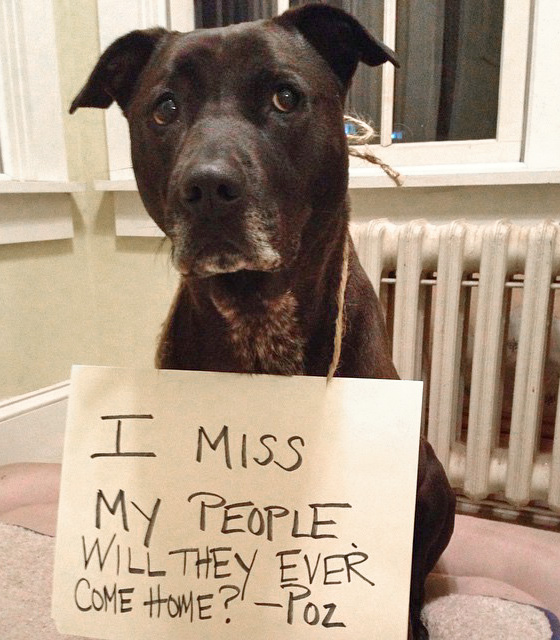 I MISS
MY PEOPLE.
WILL THEY EVER
COME HOME? -POZ